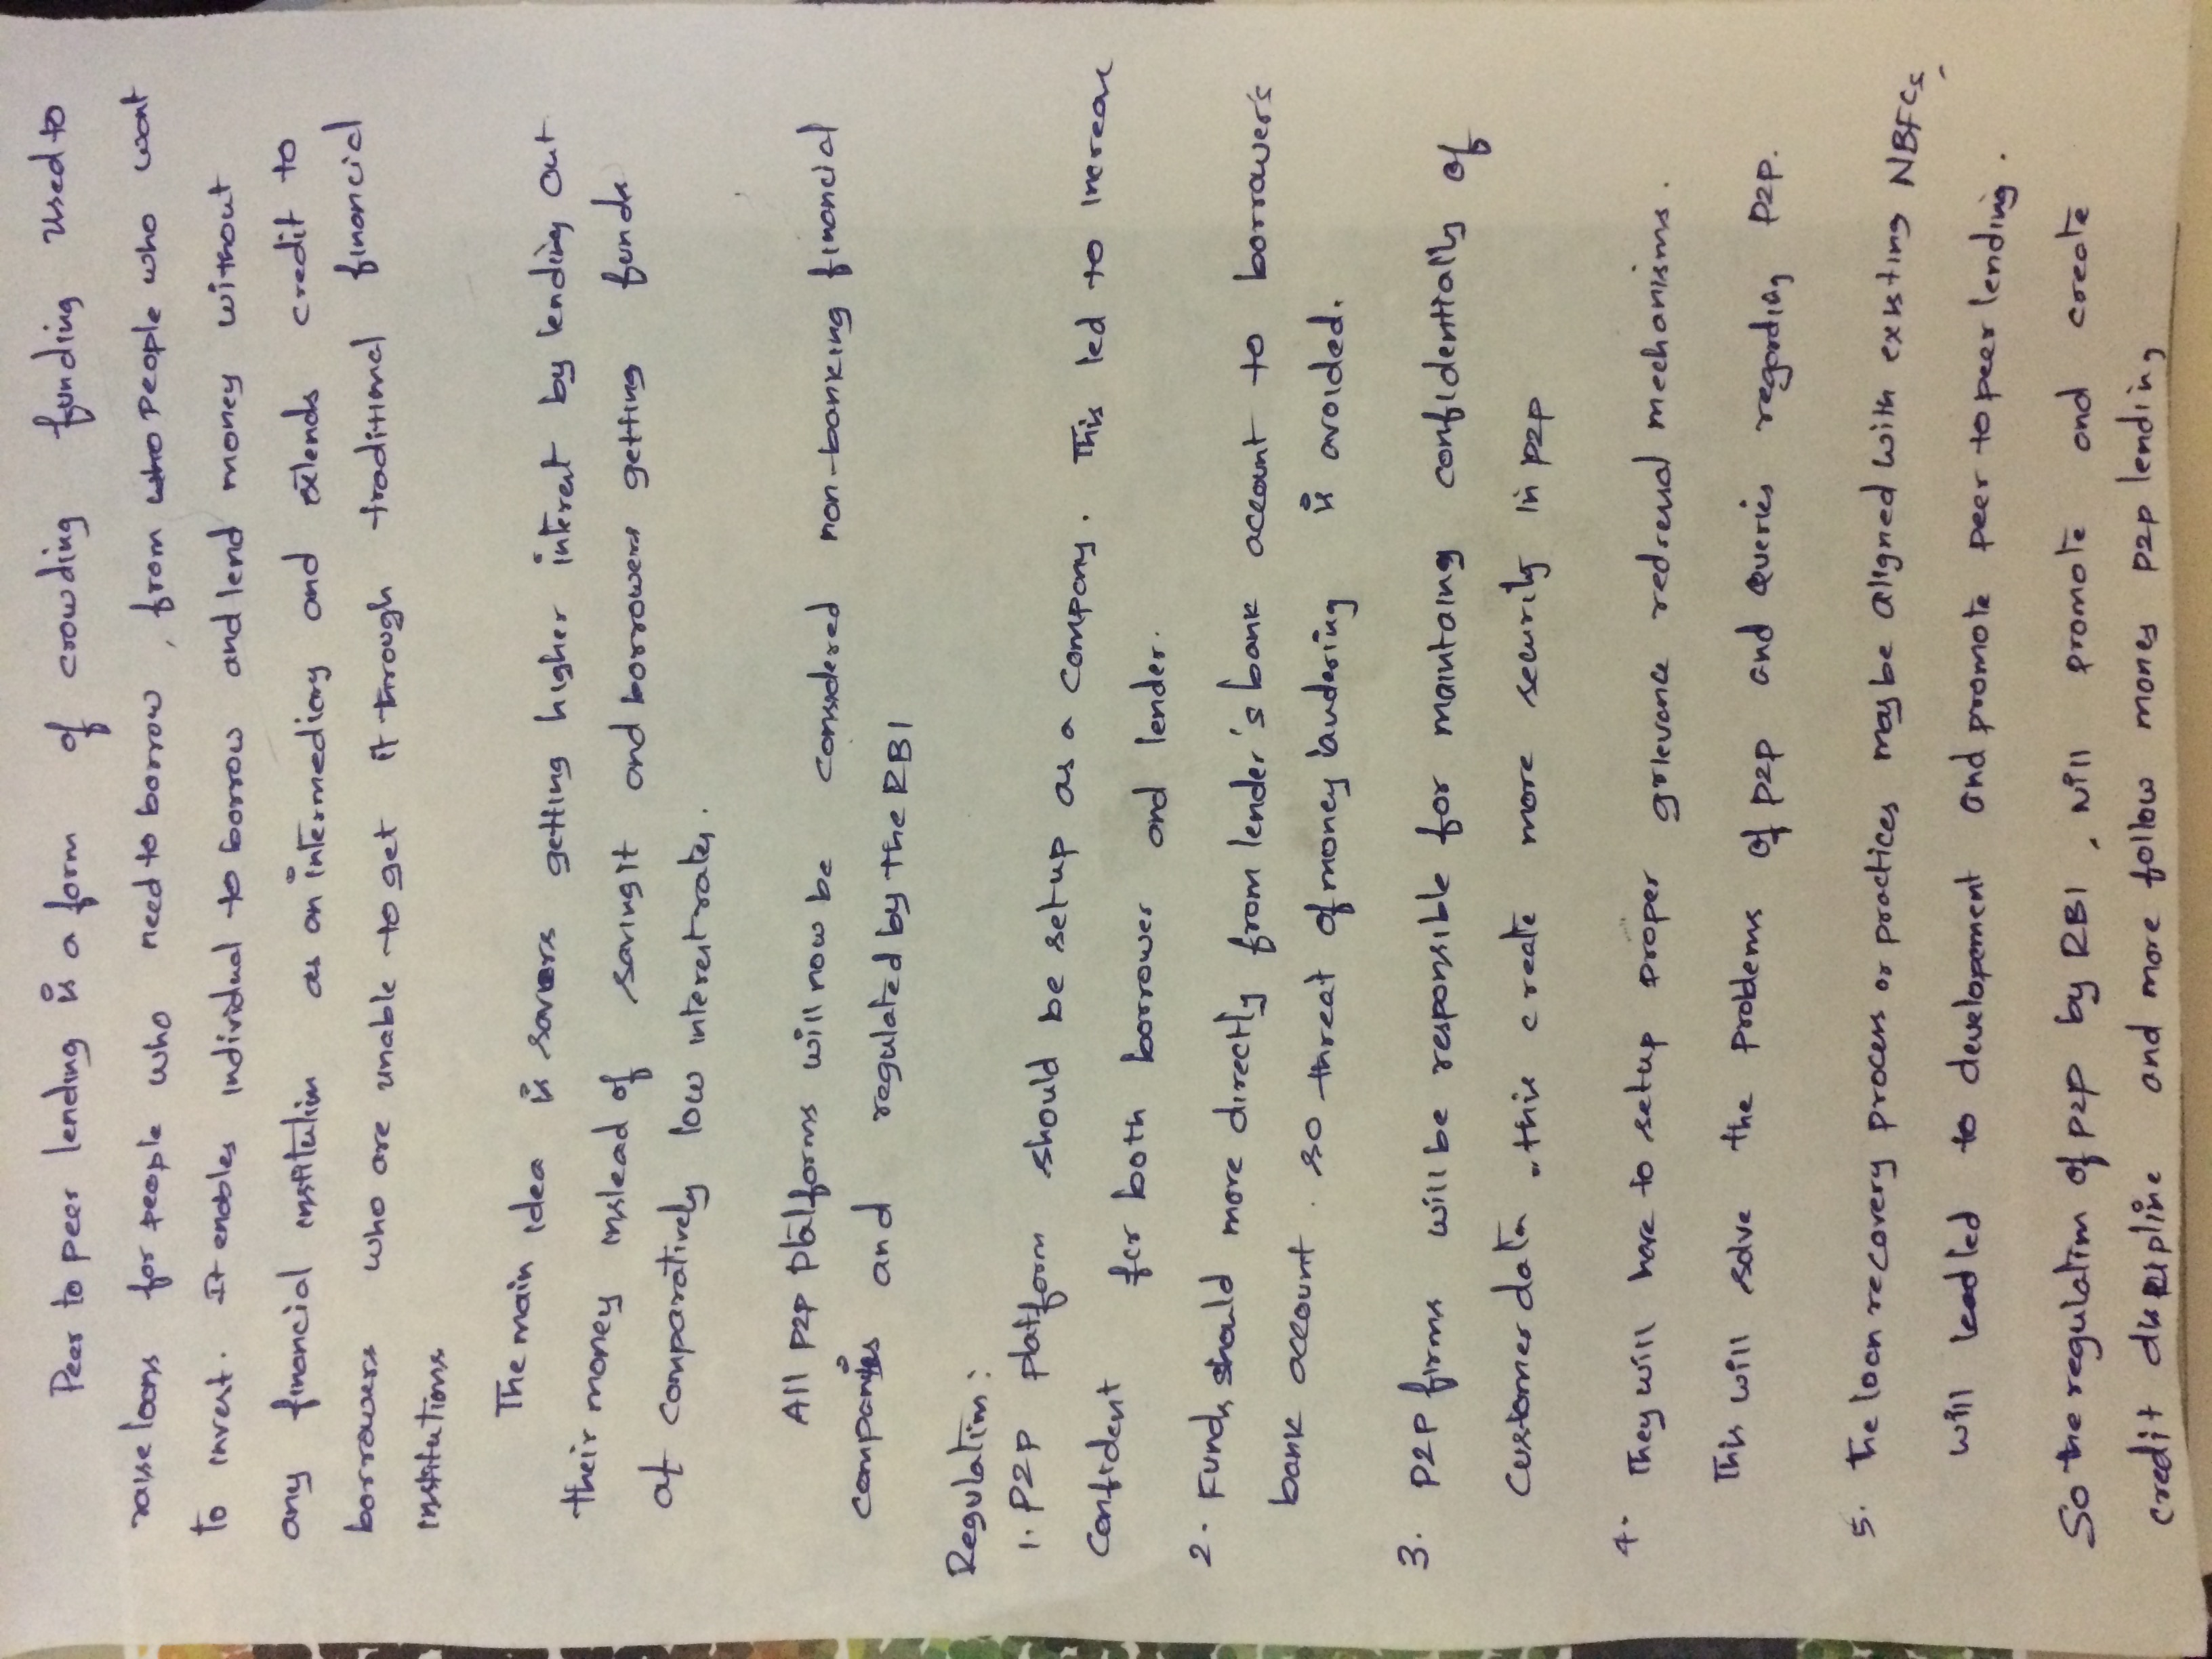 Peer to peer lending is a form of crowding funding used to
raise loans for people who need to borrow, from who people who want
to invest. It enables individual to borrow and lend money without
any financial institution as an intermediary and extends credit to
borrowers who are unable to get it through traditional financial
institutions
The main idea is savers getting higher interest by lending out
their money instead of saving it and borrowers getting funds
at comparatively low interest rates.
All P2P platforms will now be considered non-banking financial
companies and regulated by the RBI
Regulation:
1. P2P platform should be setup as a company. This led to increase
Confident for both borrower and lender.
2. Funds should move directly from lender's bank account to borrower's
bank account. so threat of money laundering is avoided.
3. P2P firms will be responsible for maintaing confidentially of
Customer data. this create more security in P2P
4. They will have to setup proper grievance redressal mechanisms.
This will solve the problems of P2P and queries regarding P2P.
5. The loan recovery process or practices may be aligned with existing NBFCs,
will lead led to developement and promote peer to peer lending.
So the regulation of P2P by RBI, will promote and create
credit discipline and more follow money P2P lending